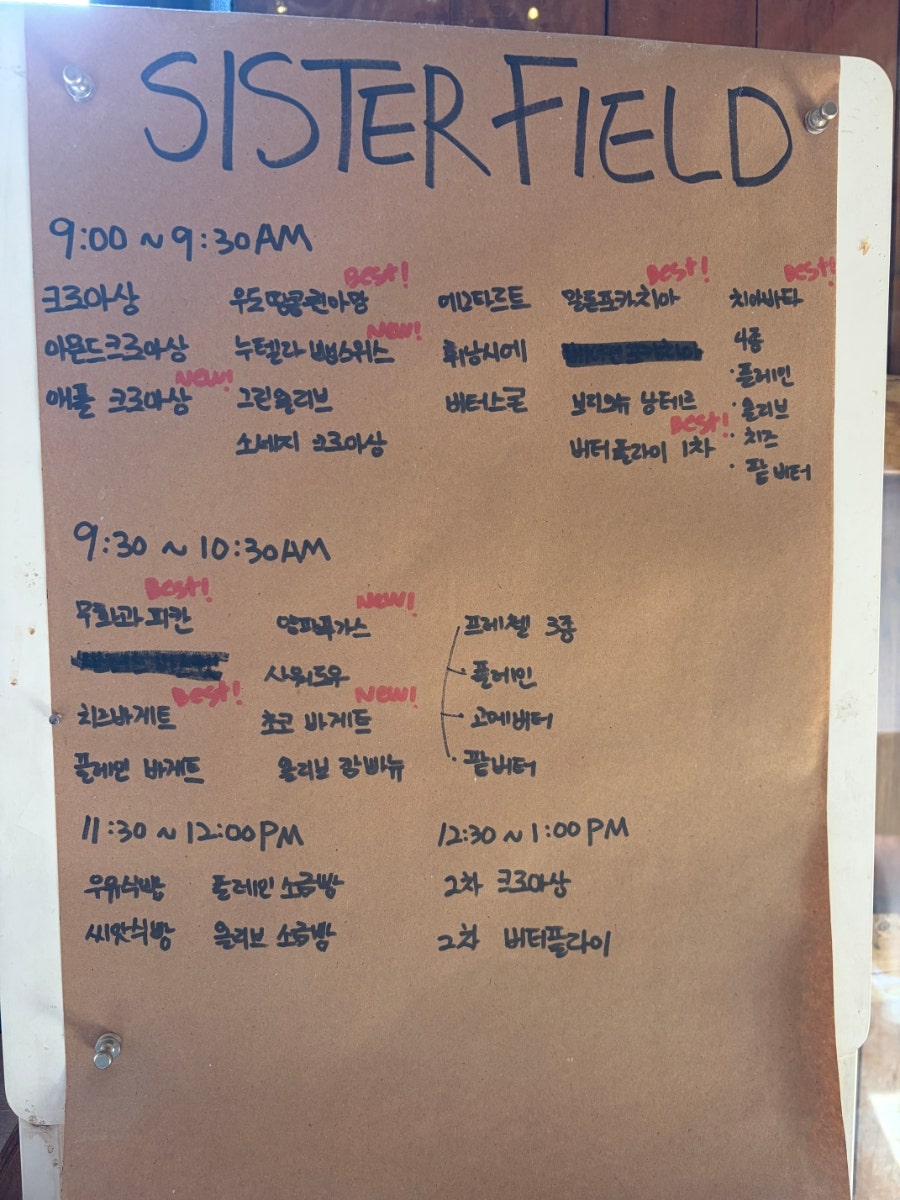 SISTER FIELD
9:00 ~ 9:30 AM
크로아상
아몬드크로아상
New!
애플 크로아상
Best!
우도땅콩퀸아망
New!
누텔라 뺑스위스
그린올리브
소세지 크로아상
에그타르트
휘낭시에
버터스콘
Best!
알돌포카치아
브리오슈 낭테르
Best!
버터플라이 1차
Best!
치아바타
4종
· 플레인
· 올리브
· 치즈
· 팥버터
9:30 ~ 10:30 AM
Best!
무화과 피칸
Best!
치즈바게트
플레인 바게트
New!
앙파푸가스
사워도우
New!
초코 바게트
올리브 깜빠뉴
프레첼 3종
· 플레인
· 고메버터
· 팥버터
11:30 ~ 12:00 PM
우유식빵 플레인 소금빵
씨앗식빵 올리브 소금빵
12:30 ~ 1:00 PM
2차 크로아상
2차 버터플라이